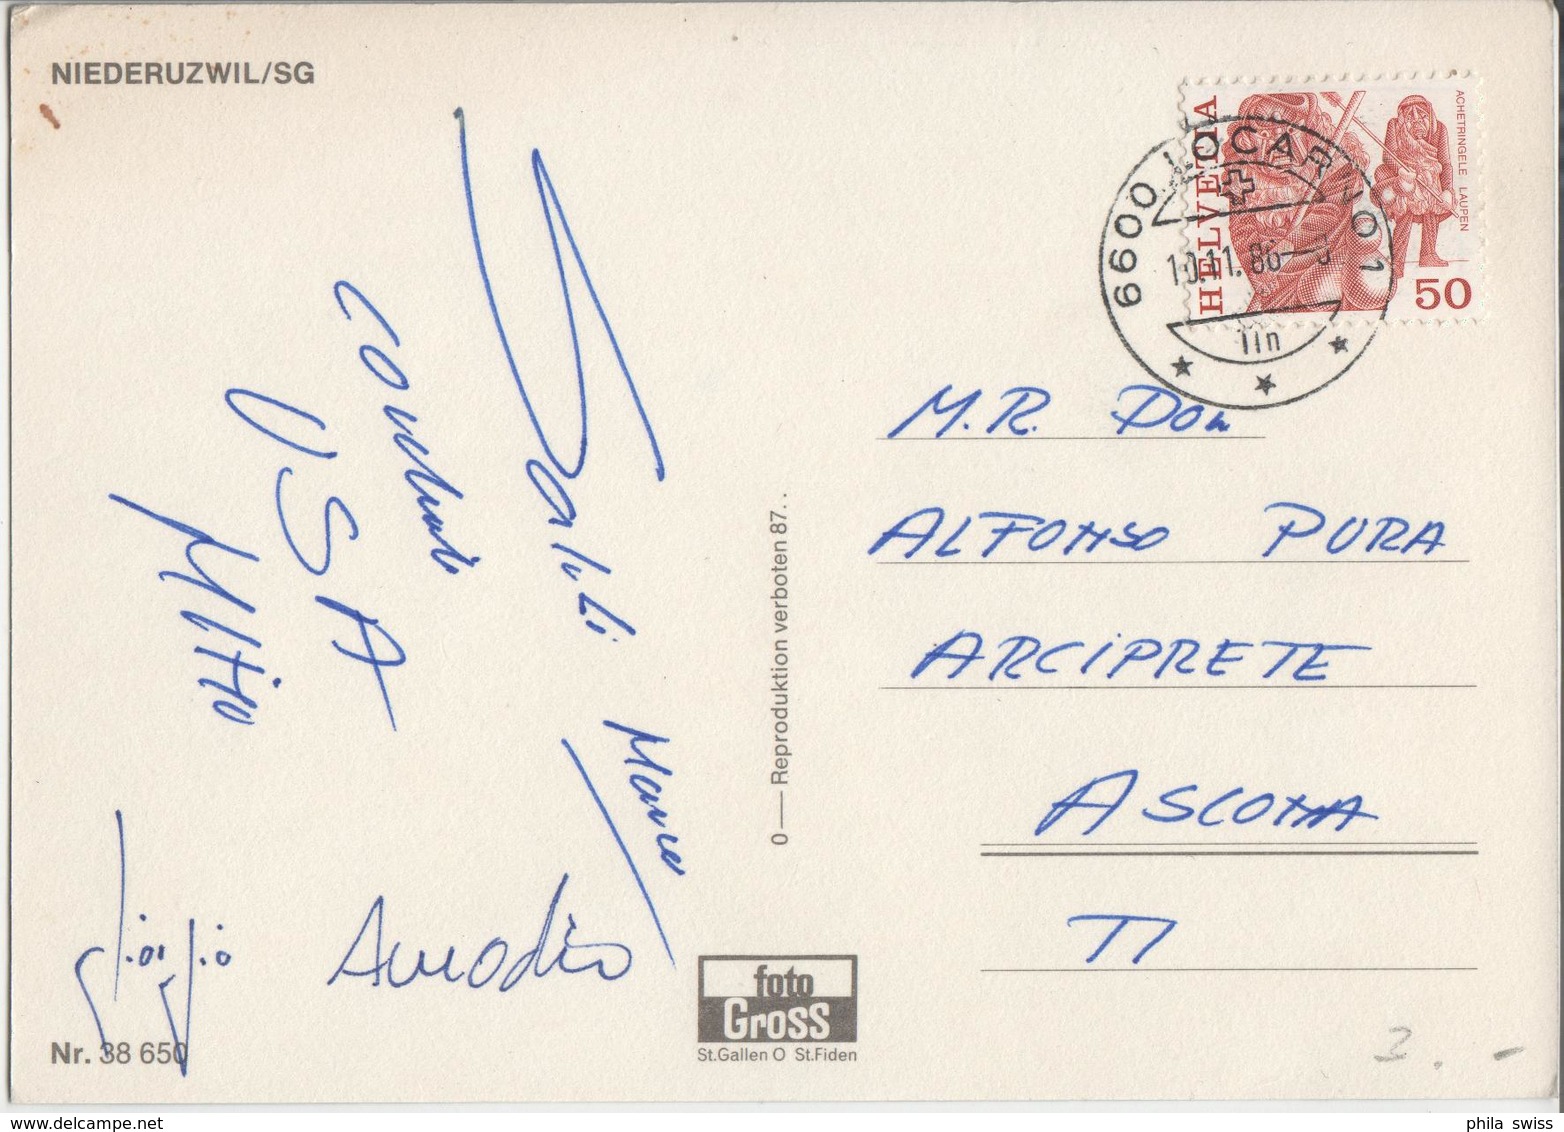 NIEDERUZWIL/SG
HELVETIA
ACHETRINGELE LAUPEN
50
6600 LOCARNO 1
10.11.86
Saluti
USA
Marco
Giorgio
Amedeo
0 — Reproduktion verboten 87. .
M.R. Don
ALFONSO PURA
ARCIPRETE
ASCONA
TI
foto
Gross
St.Gallen O St.Fiden
Nr. 38 650
phila swiss